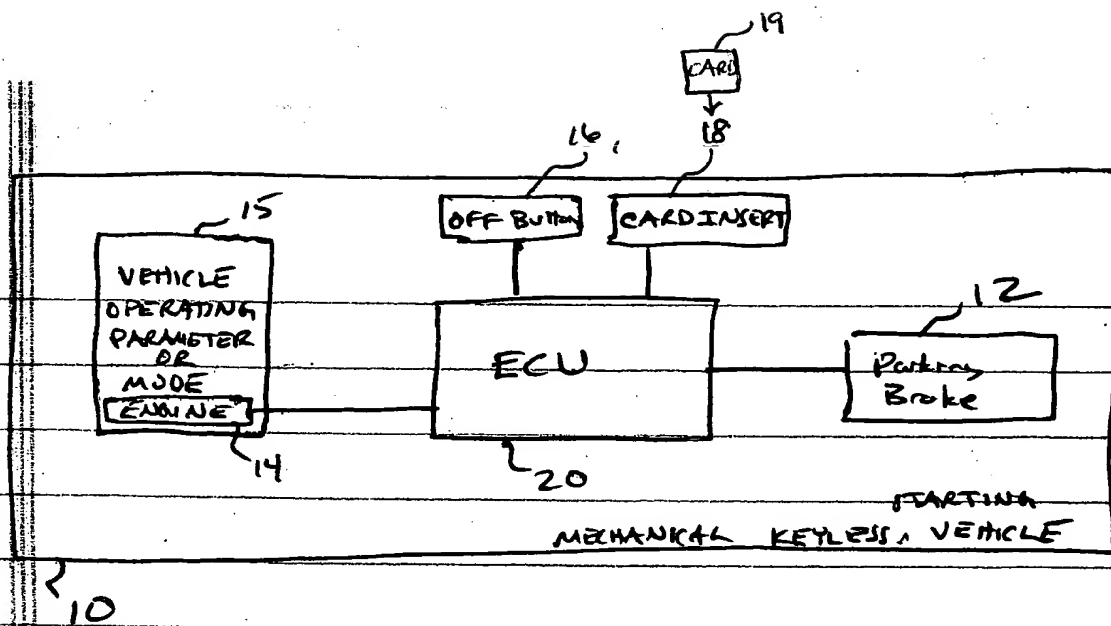 19
CARD
16,
18
15
OFF Button
CARD INSERT
VEHICLE
OPERATING
PARAMETER
OR
MODE
ENGINE
14
ECU
20
12
Parking
Brake
STARTING
MECHANICAL KEYLESS VEHICLE
10